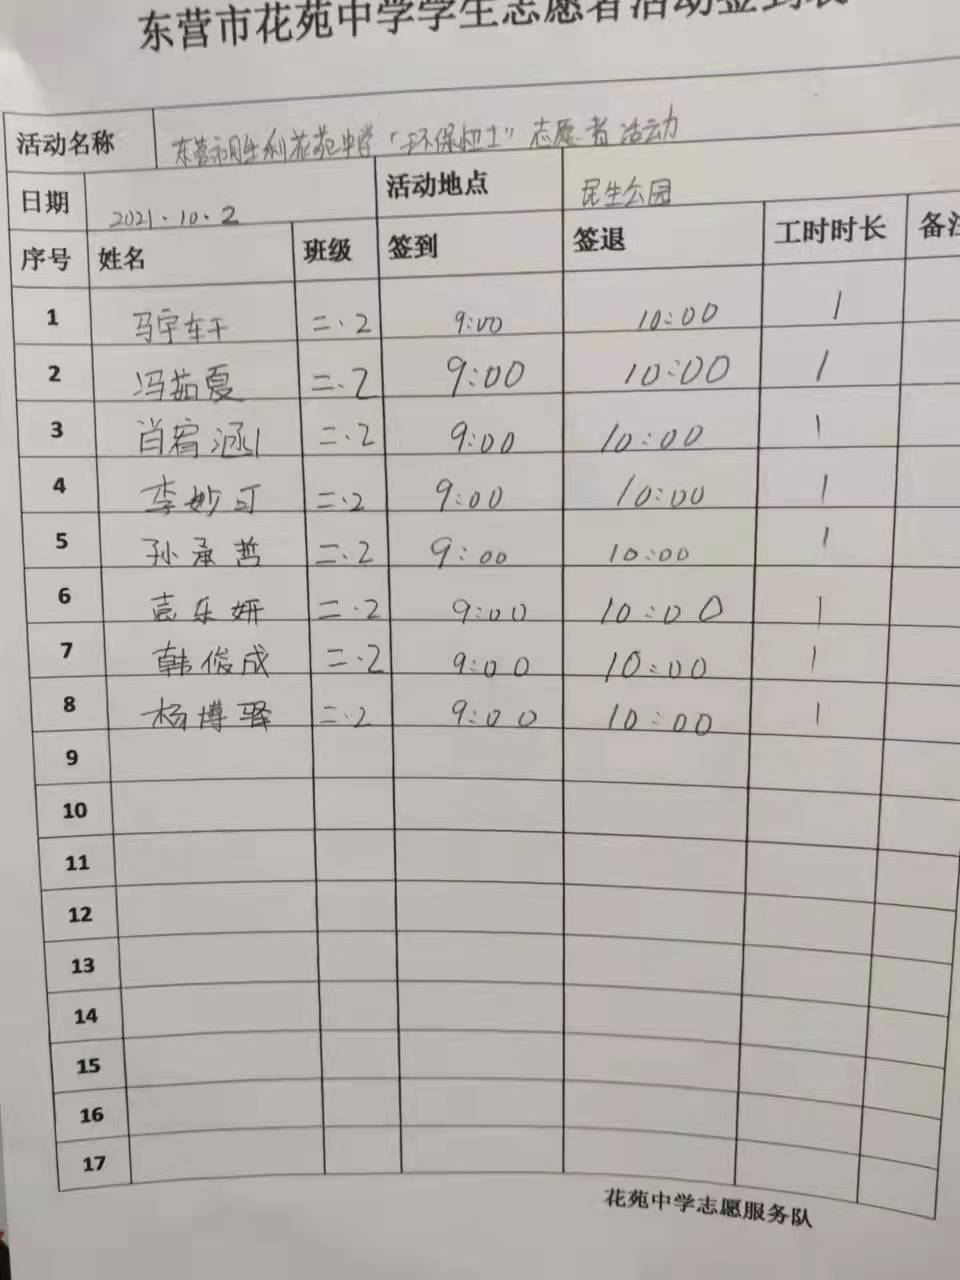 东营市花苑中学学生志愿者活动签到表
活动名称 东营市胜利花苑中学“环保卫士”志愿者活动
日期 2021.10.2 活动地点 民生公园
序号 姓名 班级 签到 签退 工时时长 备注
1 马宇轩 二.2 9:00 10:00 1
2 冯茹夏 二.2 9:00 10:00 1
3 肖 涵 二.2 9:00 10:00 1
4 李妙可 二.2 9:00 10:00 1
5 孙承哲 二.2 9:00 10:00 1
6 袁乐妍 二.2 9:00 10:00 1
7 韩俊成 二.2 9:00 10:00 1
8 杨博驿 二.2 9:00 10:00 1
9
10
11
12
13
14
15
16
17
花苑中学志愿服务队